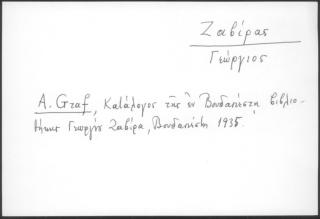 Ζαβίρας
Γεώργιος
A. Graf, Κατάλογος τῆς ἐν Βουδαπέστῃ βιβλιο-
θήκης Γεωργίου Ζαβίρα, Βουδαπέστη 1935.